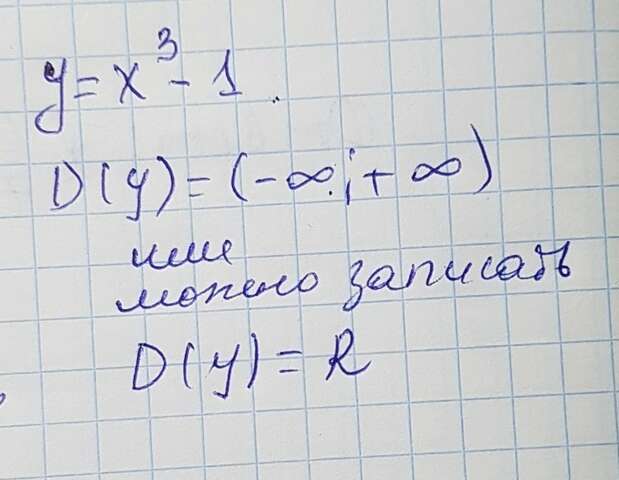 y = x³ - 1.
D(y) = (-∞; +∞)
или
можно записать
D(y) = R